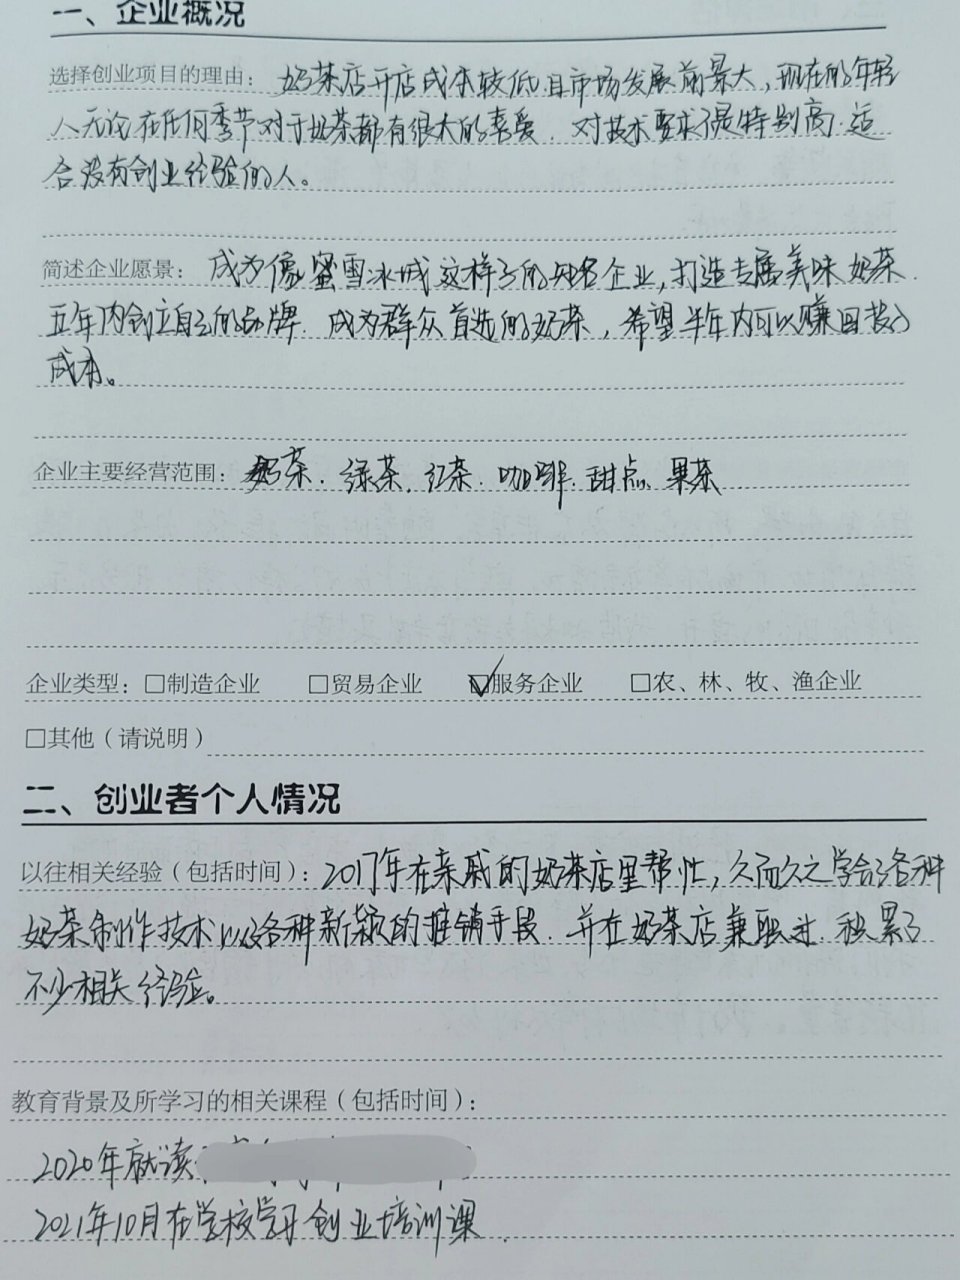 一、企业概况
选择创业项目的理由：奶茶店开店成本较低且市场发展前景大，现在的年轻
人无论在任何季节对于奶茶都有很大的喜爱．对技术要求不是特别高．适
合没有创业经验的人。
简述企业愿景：成为像蜜雪冰城这样子的知名企业，打造专属美味奶茶．
五年内创立自己的品牌．成为群众首选的奶茶，希望半年内可以赚回投入
成本。
企业主要经营范围：奶茶．绿茶．红茶．咖啡．甜点．果茶
企业类型：□制造企业 □贸易企业 ☑服务企业 □农、林、牧、渔企业
□其他（请说明）
二、创业者个人情况
以往相关经验（包括时间）：2017年在亲戚的奶茶店里帮忙，久而久之学会了各种
奶茶制作技术以及各种新颖的推销手段．并在奶茶店兼职过．积累了
不少相关经验。
教育背景及所学习的相关课程（包括时间）：
2020年就读
2021年10月在学校学习创业培训课．